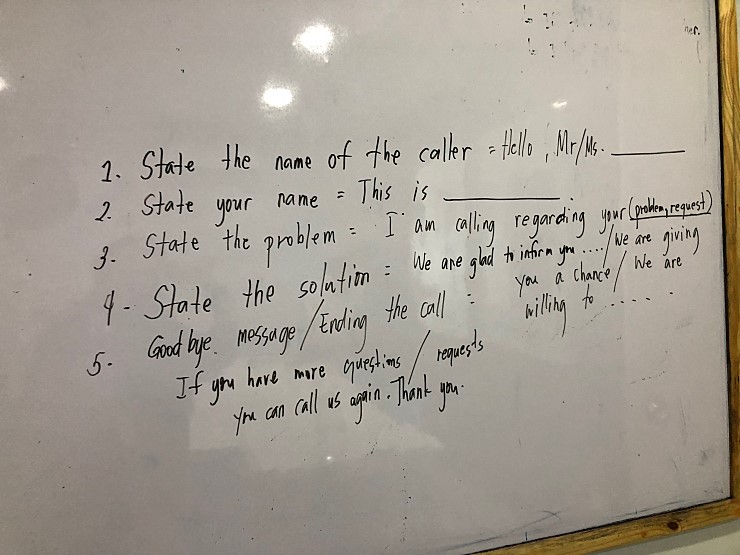 1. State the name of the caller = Hello, Mr/Ms. ______
2. State your name = This is ______
3. State the problem = I am calling regarding your (problem, request)
4- State the solution = We are glad to inform you ..../We are giving
you a chance/ We are
willing to .....
5- Good bye message/Ending the call =
If you have more questions / requests
you can call us again. Thank you.